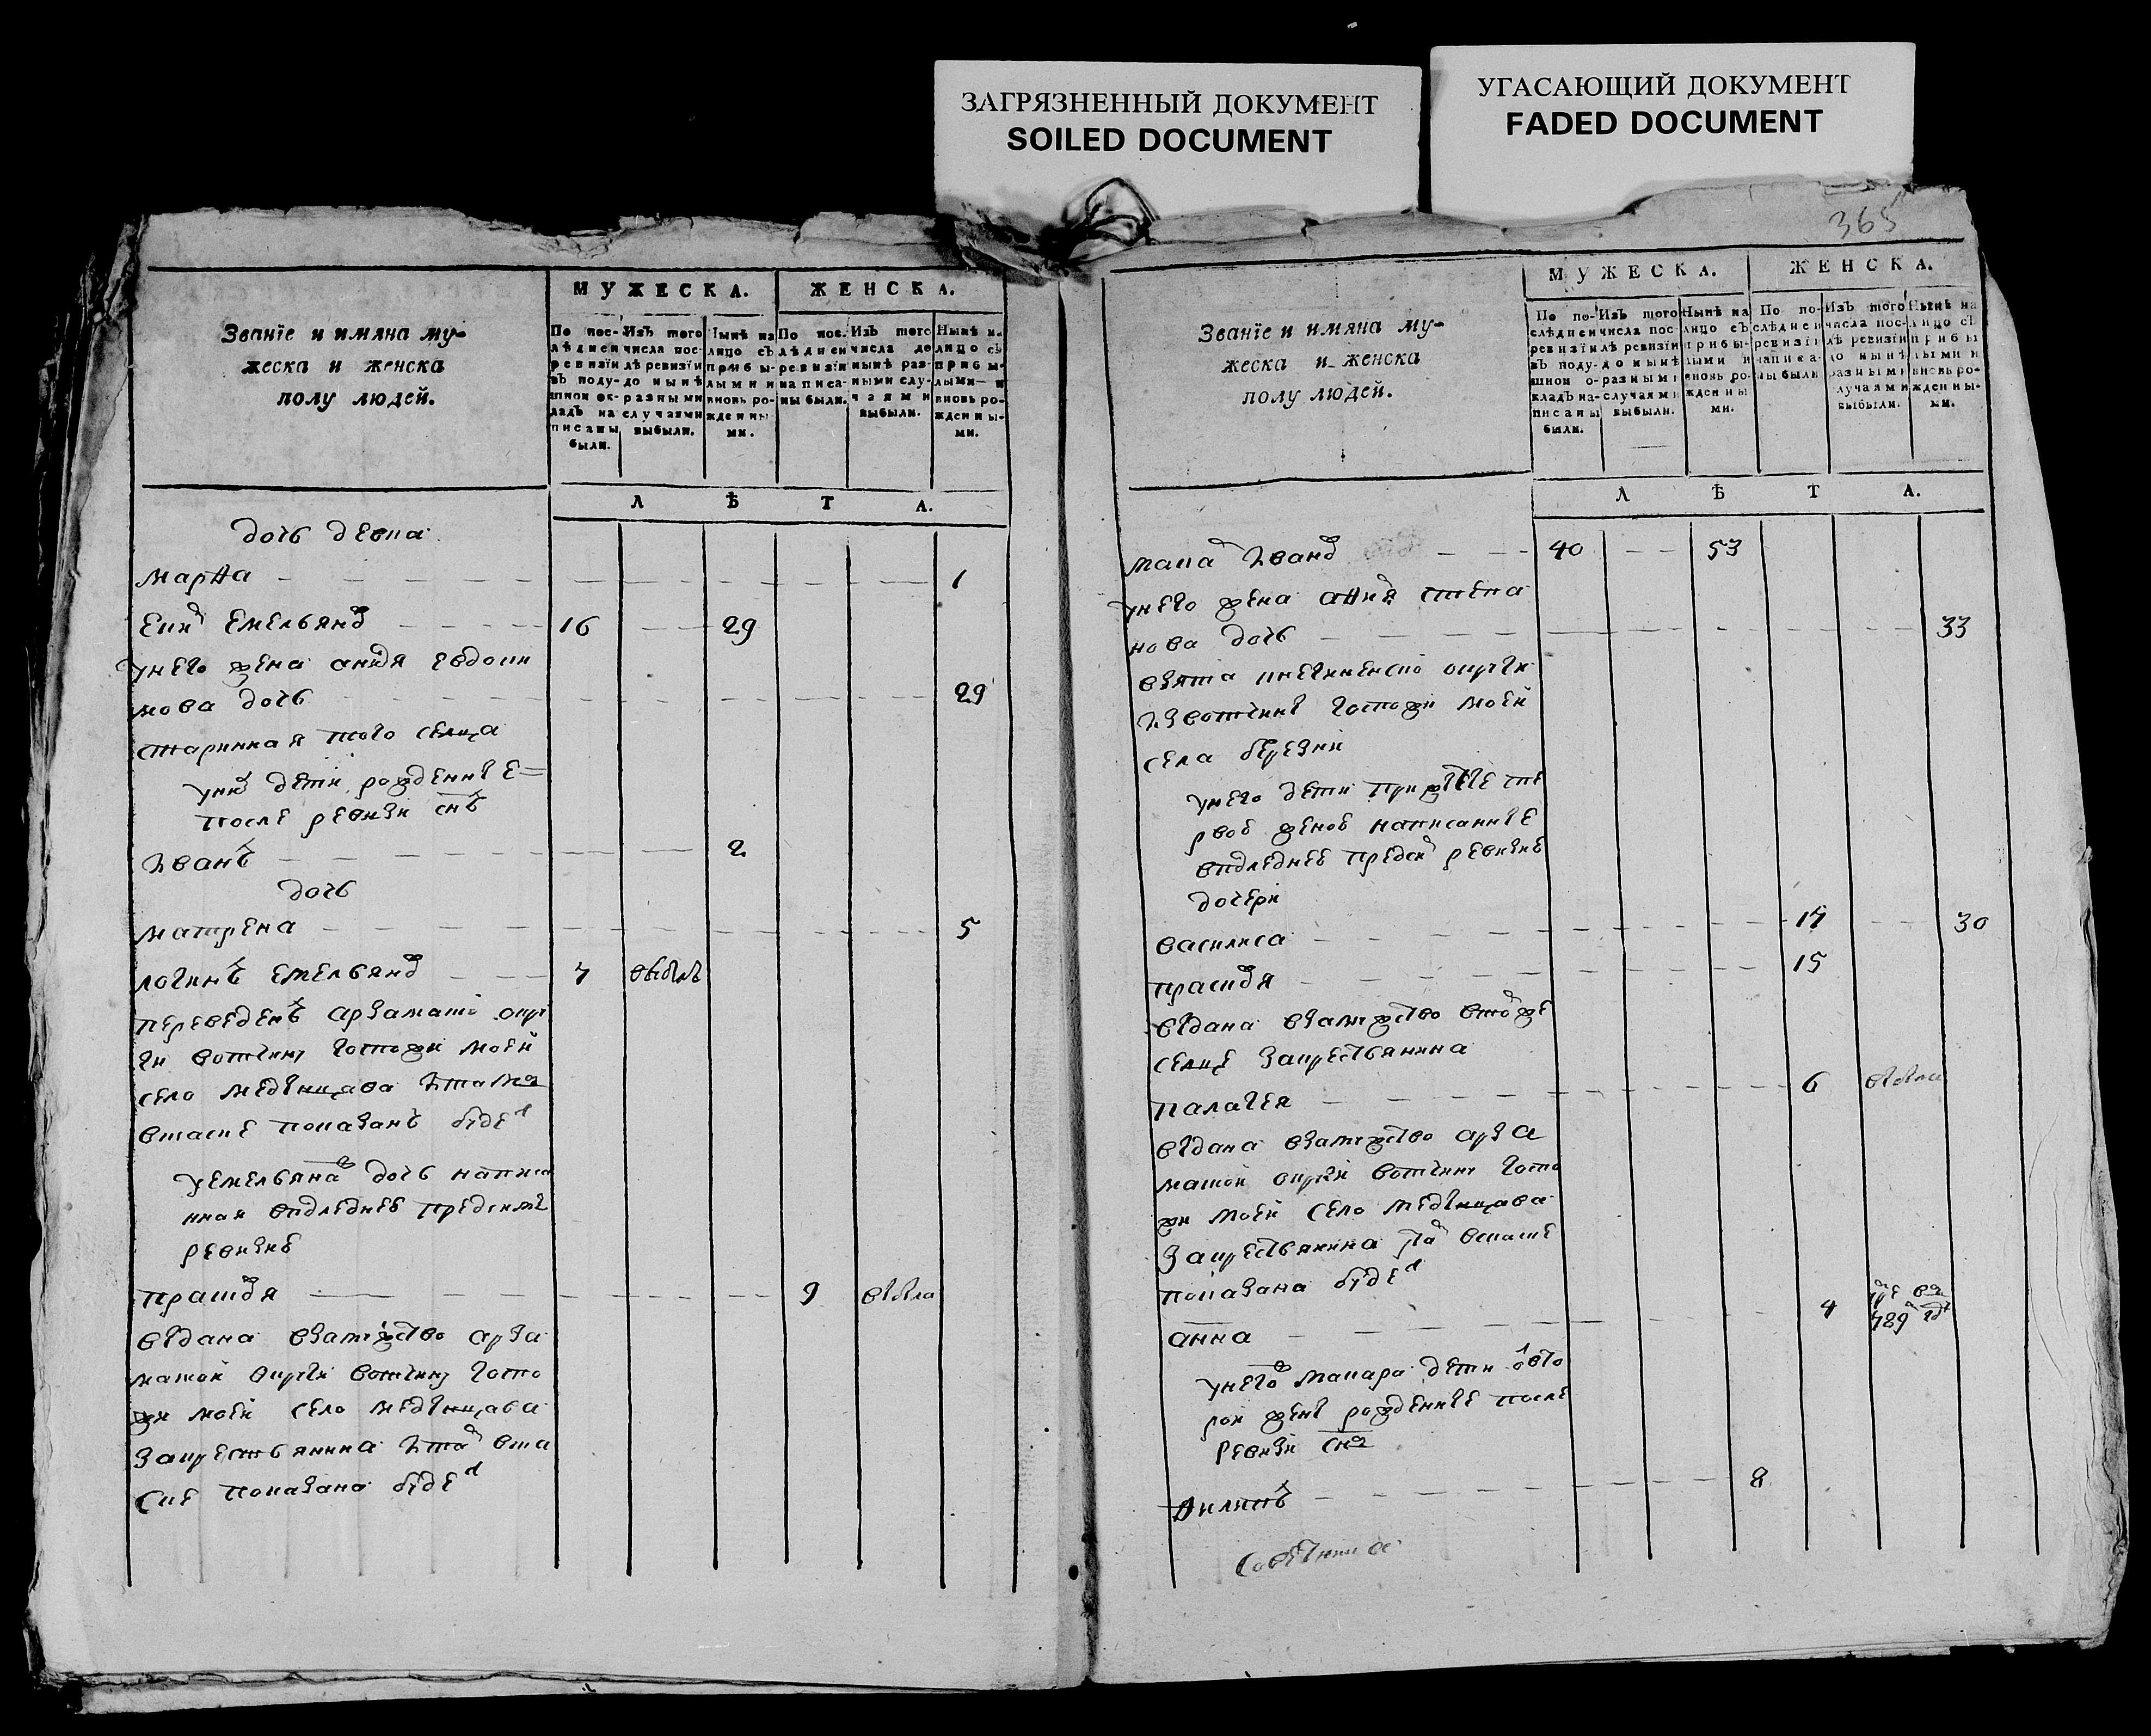 ЗАГРЯЗНЕННЫЙ ДОКУМЕНТ
SOILED DOCUMENT
УГАСАЮЩИЙ ДОКУМЕНТ
FADED DOCUMENT
365
МУЖЕСКА. ЖЕНСКА.
Званїе и имяна му-
жеска и женска
полу людей.
По пос-
лѣдней
ревизїи
въ поду-
шной ок-
ладъ на
писаны
были.
Изъ того
числа пос-
лѣ ревизїи
до нынѣ
разными
случаями
выбыли.
Нынѣ на
лицо съ
прибы-
лыми и
вновь ро-
жденны-
ми.
По пос.
лѣдней
ревизїи
написа-
ны были.
Изъ того
числа до
нынѣ раз-
ными слу-
чаями
выбыли.
Нынѣ на
лицо съ
прибы-
лыми и
вновь ро-
жденны-
ми.
Л Ѣ Т А.
дочь девка
марѳа 1
емельянов 16 29
унего жена авдотя евдоки
мова дочь 29
старинная того селца
униⷯ дети рожденные
после ревизи снъ
Иванъ 2
дочь
матрена 5
логинъ емельянов 7 выбылъ
переведенъ арзамаско окру
ги вотчину госпожи моей
село медынцава
въсаске показанъ будеⷮ
уемельяна дочь написа
нная впоследнеѣ предсимъ
ревизиѣ
прасковя 9 выбыла
выдана взамужство арза
маской округи вотчину госпо
жи моей село медынцава
закрестьянина вска
ске показана будеⷮ
МУЖЕСКА. ЖЕНСКА.
Званїе и имяна му-
жеска и женска
полу людей.
По по-
слѣдней
ревизїи
въ поду-
шной о-
кладъ на-
писаны
были.
Изъ того
числа пос-
лѣ ревизїи
до нынѣ
разными
случаями
выбыли.
Нынѣ на
лицо съ
прибы-
лыми и
вновь ро-
жденны-
ми.
По по-
слѣдней
ревизїи
написа-
ны были
Изъ того
числа пос-
лѣ ревизїи
до нынѣ
разными
случаями
выбыли.
Нынѣ на
лицо съ
прибы-
лыми и
вновь ро-
жденны-
ми.
Л Ѣ Т А.
макаⷬ Иванов 40 53
унего жена степа
нова дочь 33
взята округи
извотчины госпожи моей
села березни
унего дети прижитые спе
рвоѣ женоѣ написанные
впоследнеѣ предсиⷨ ревизиѣ
дочери
василиса 17 30
прасковя 15
выдана взамужство втоⷨже
селце закрестьянина
палагея 6 выбыла
выдана взамужство арза
маской округи вотчину госпо
жи моей село медынцава
закрестьянина вскаске
показана будеⷮ
анна 4 789
унего макара дети отвто
рой жены рожденные после
ревизи
Филипъ 8